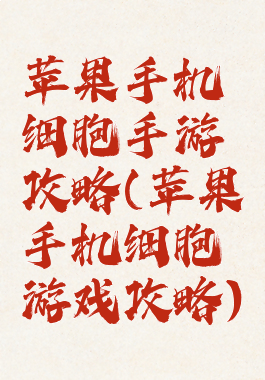 苹果手机
细胞手游
攻略(苹果
手机细胞
游戏攻略)